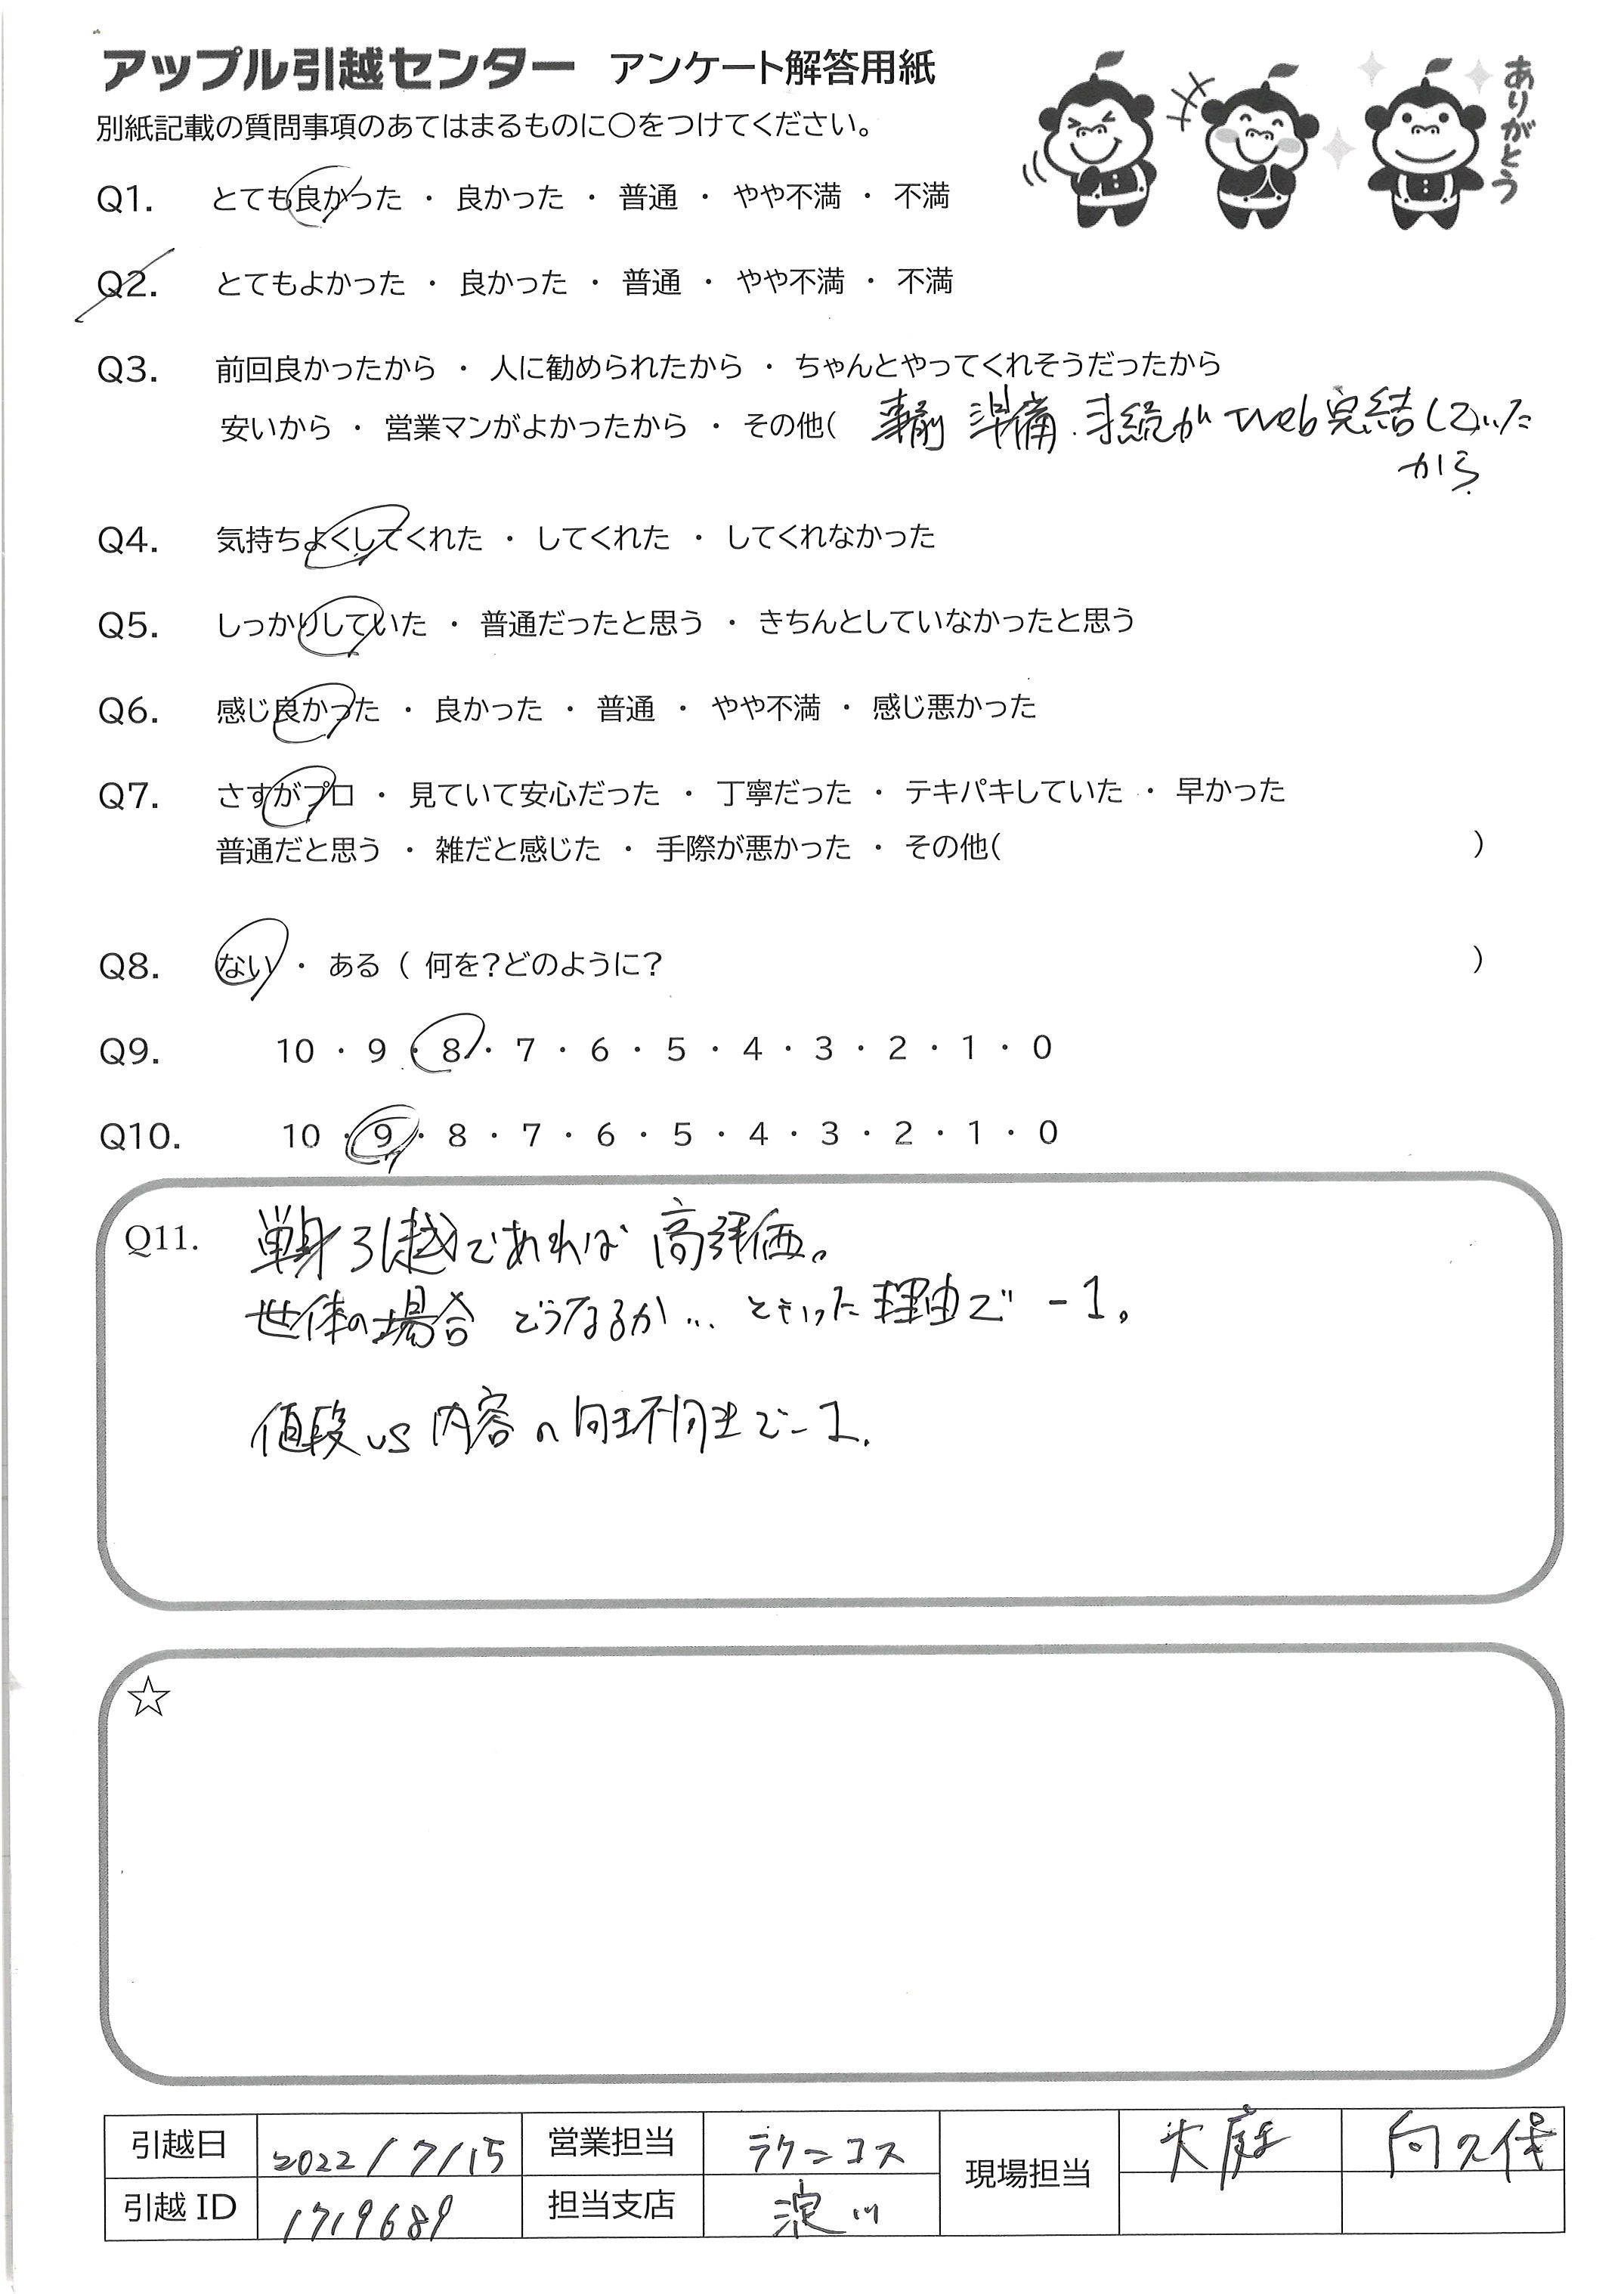 アップル引越センター アンケート解答用紙
ありがとう
別紙記載の質問事項のあてはまるものに○をつけてください。
Q1. とても良かった ・ 良かった ・ 普通 ・ やや不満 ・ 不満
Q2. とてもよかった ・ 良かった ・ 普通 ・ やや不満 ・ 不満
Q3. 前回良かったから ・ 人に勧められたから ・ ちゃんとやってくれそうだったから
安いから ・ 営業マンがよかったから ・ その他( 事前 準備・手続がWeb完結していた
から
Q4. 気持ちよくしてくれた ・ してくれた ・ してくれなかった
Q5. しっかりしていた ・ 普通だったと思う ・ きちんとしていなかったと思う
Q6. 感じ良かった ・ 良かった ・ 普通 ・ やや不満 ・ 感じ悪かった
Q7. さすがプロ ・ 見ていて安心だった ・ 丁寧だった ・ テキパキしていた ・ 早かった
普通だと思う ・ 雑だと感じた ・ 手際が悪かった ・ その他( )
Q8. ない ・ ある ( 何を?どのように? )
Q9. 10 ・ 9 ・ 8 ・ 7 ・ 6 ・ 5 ・ 4 ・ 3 ・ 2 ・ 1 ・ 0
Q10. 10 ・ 9 ・ 8 ・ 7 ・ 6 ・ 5 ・ 4 ・ 3 ・ 2 ・ 1 ・ 0
Q11. 単身引越であれば高評価。
世体の場合 どうなるか… といった理由で -1。
値段 vs 内容の で -1.
☆
引越日 2022/7/15 営業担当 ラクニコス 現場担当 大庭 向久保
引越 ID 1719689 担当支店 淀川